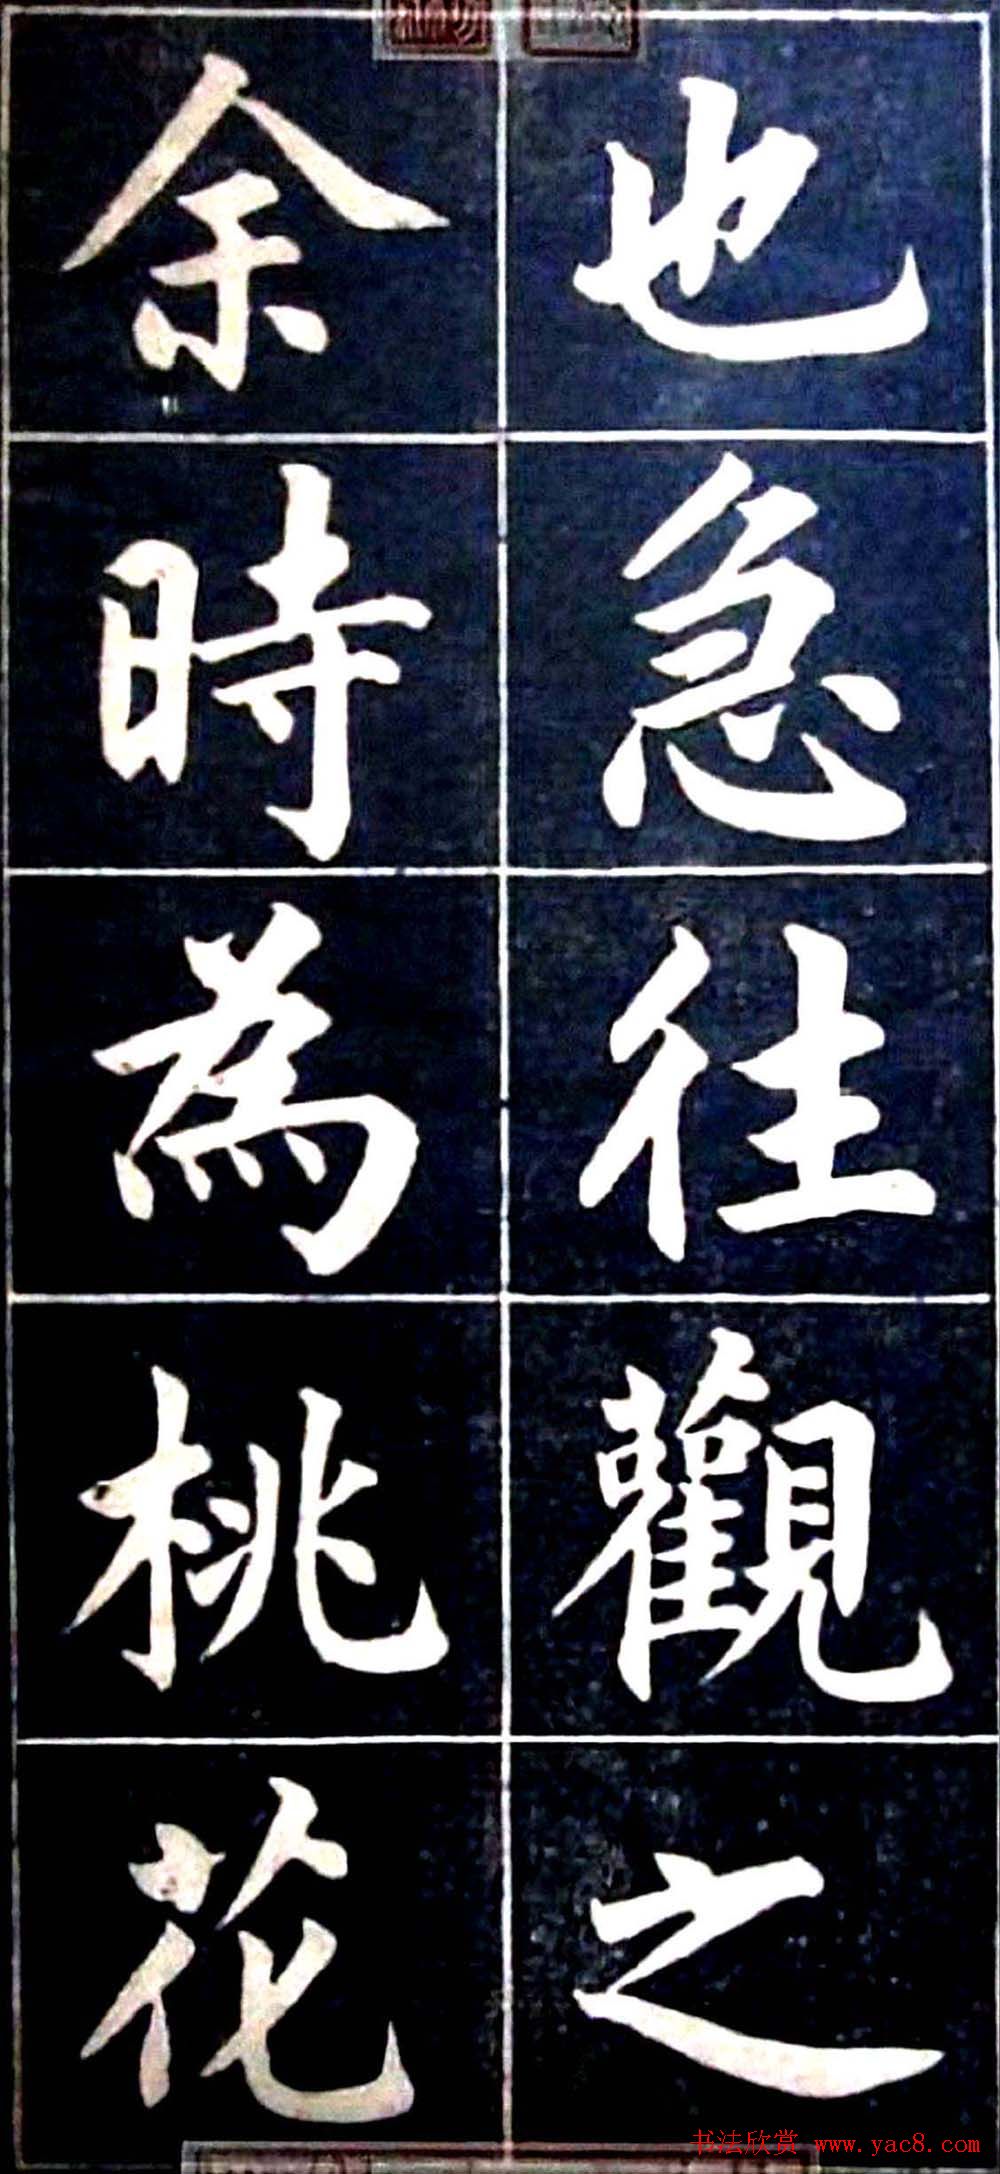 也急往觀之
余時為桃花
书法欣赏 www.yac8.com